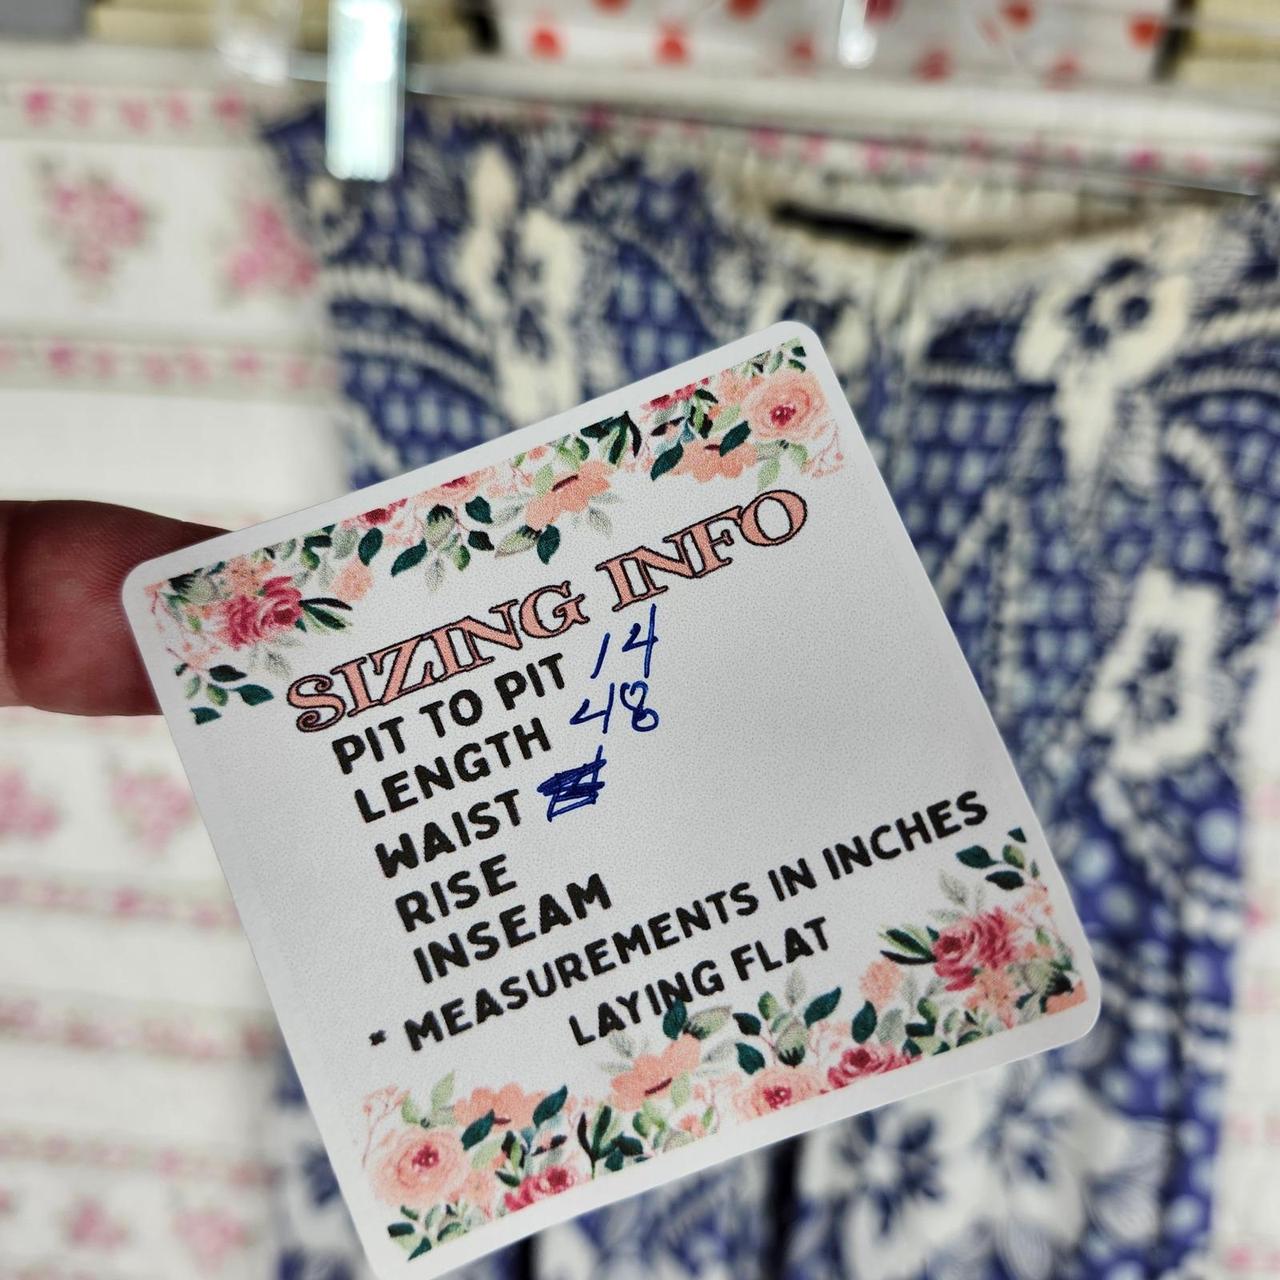 SIZING INFO
PIT TO PIT 14
LENGTH 48
WAIST
RISE
INSEAM
* MEASUREMENTS IN INCHES
LAYING FLAT